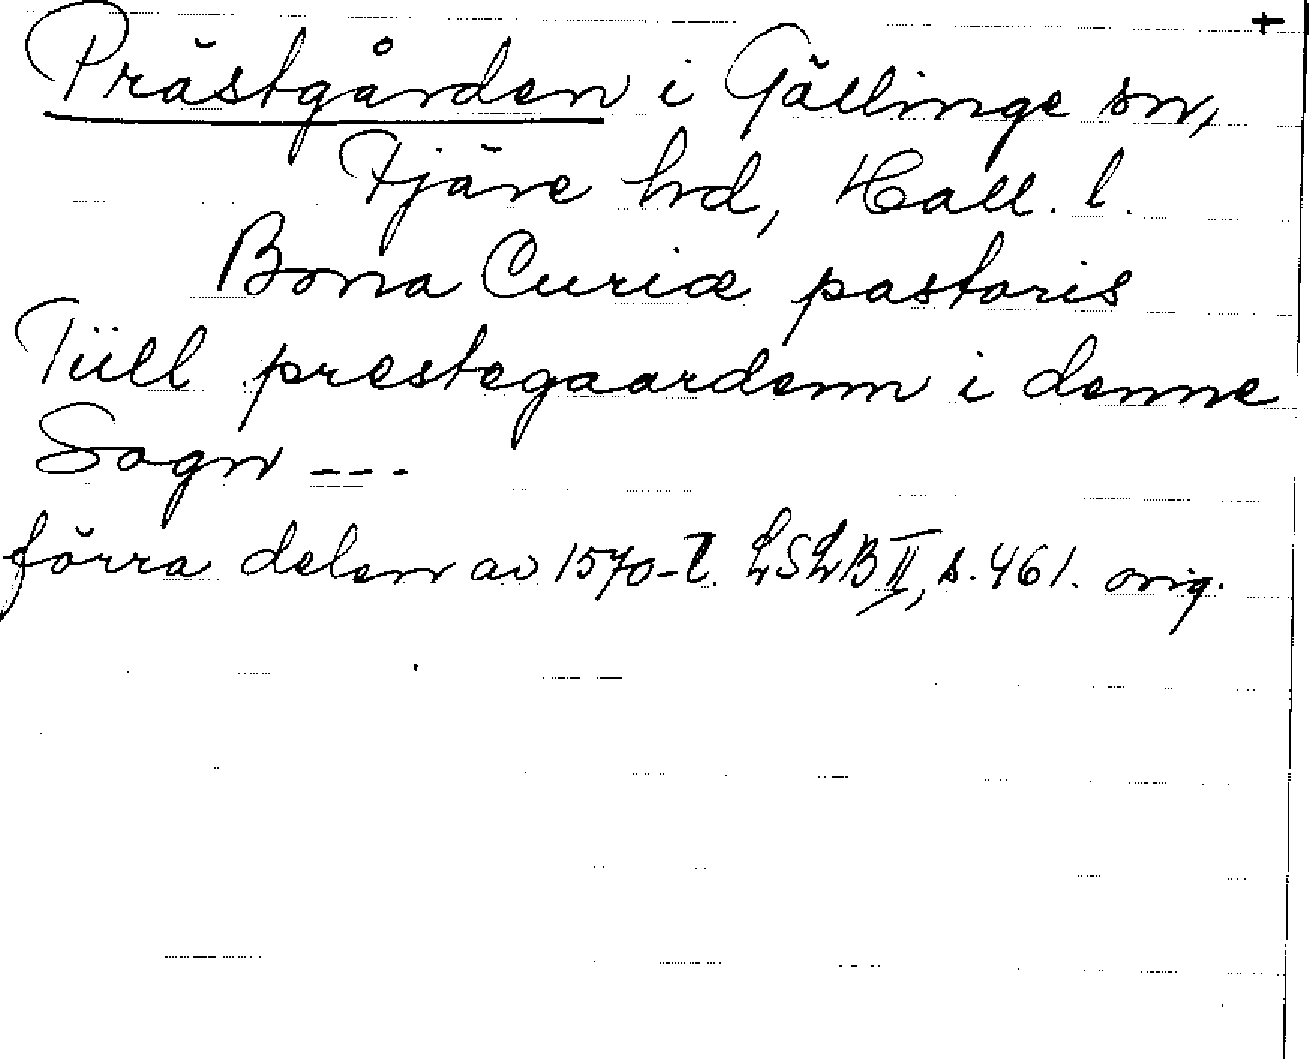 +
Prästgården i Gällinge sn,
Fjäre hd, Hall. l.
Bona Curiæ pastoris
Tüll prestegaardenn i denne
Sogn ---
förra delen av 1570-t. LSLB II, s. 461. orig.